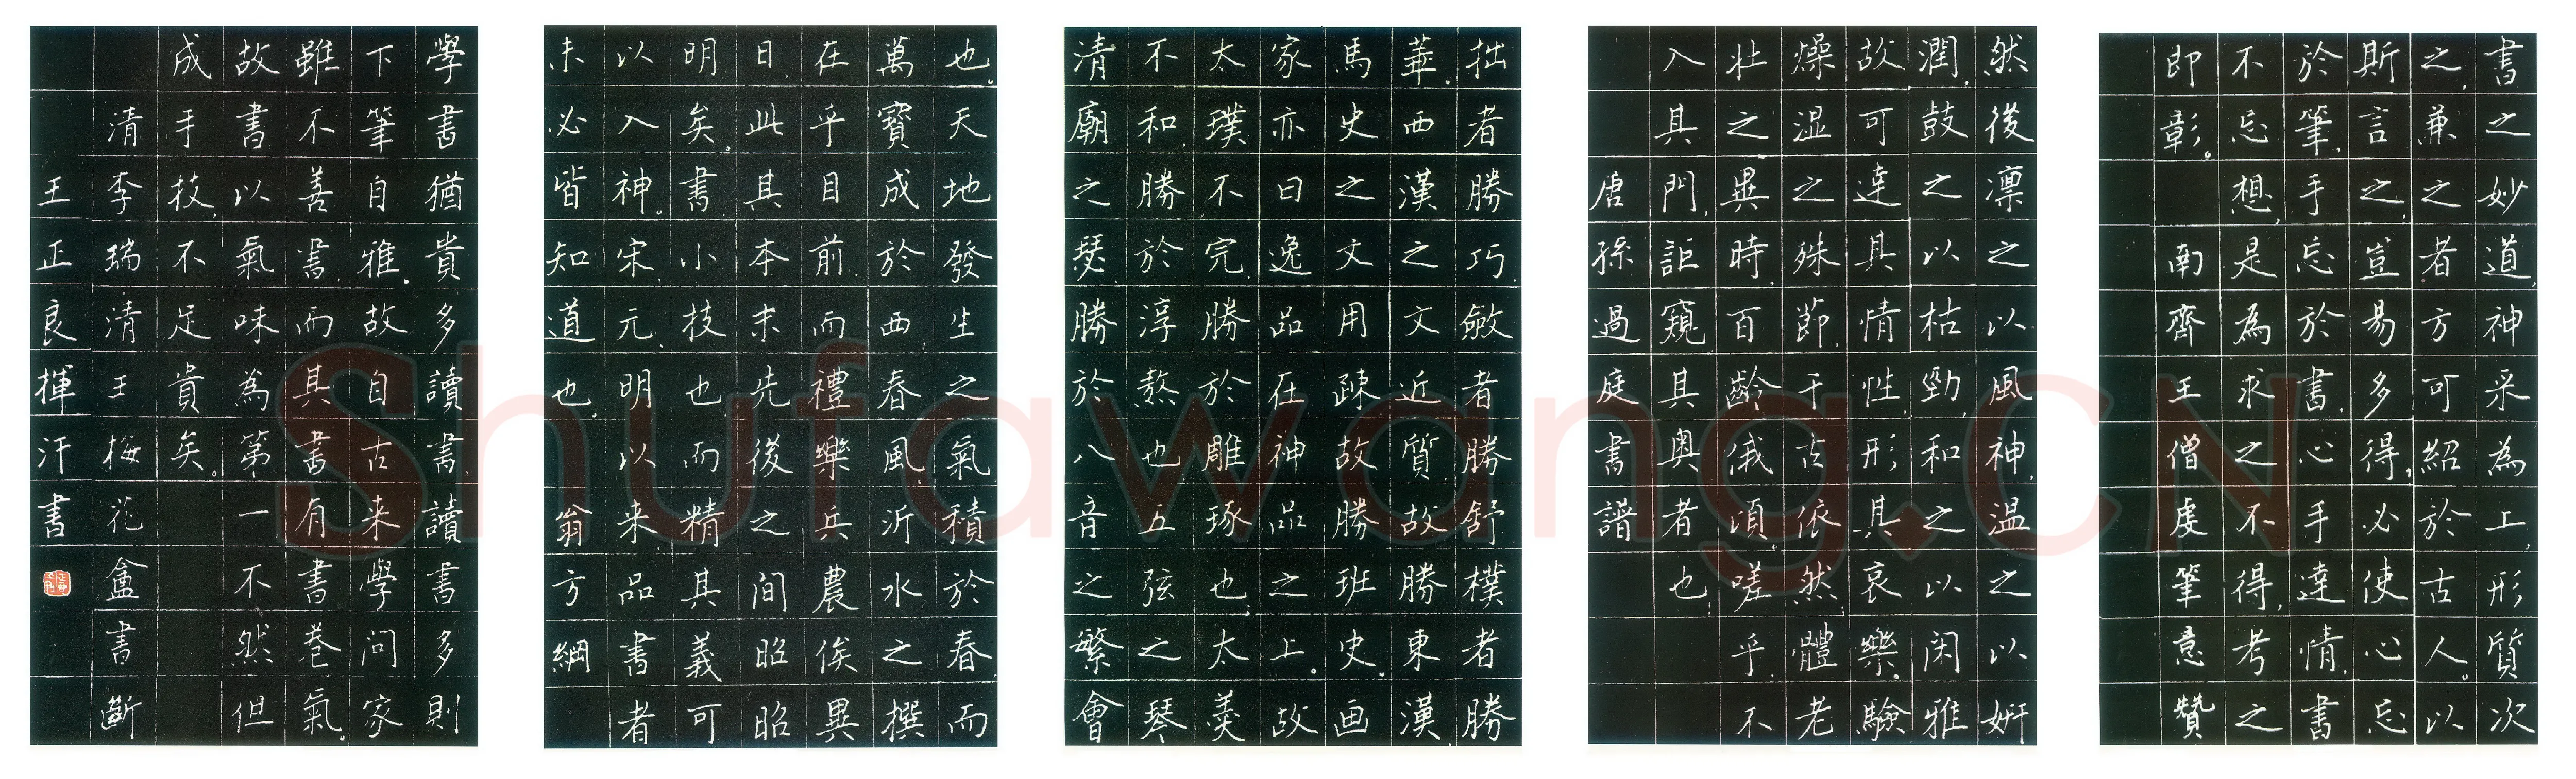 書之妙道,神采為上,形質次
之,兼之者方可紹於古人。以
斯言之,豈易多得,必使心忘
於筆,手忘於書,心手達情,書
不忘想,是為求之不得,考之
即彰。 南齊王僧虔筆意贊
然後凛之以風神,温之以妍
潤,鼓之以枯勁,和之以闲雅
故可達其情性,形其哀樂。驗
燥湿之殊節,千古依然,體老
壯之異時,百齡俄頃,嗟乎,不
入其門,詎窺其奥者也,
唐孫過庭書譜
拙者勝巧,斂者勝舒,樸者勝
華。西漢之文近質,故勝東漢
馬史之文用疎故勝班史。画
家亦曰逸品在神品之上。故
太璞不完,勝於雕琢也,太羹
不和,勝於淳熬也,五弦之琴
清廟之瑟,勝於八音之繁會
也。天地發生之氣積於春,而
萬寶成於西,春風沂水之撰
在乎目前,而禮樂兵農俟異
日,此其本末先後之间昭昭
明矣。書小技也,而精其義可
以入神。宋元明以来品書者
未必皆知道也,翁方綱
學書猶貴多讀書,讀書多則
下筆自雅。故自古来學问家
雖不善書,而其書有書卷氣。
故書以氣味為第一,不然但
成手技,不足貴矣。
清李瑞清王梅花盦書斷
王正良揮汗書
Shufawang.CN